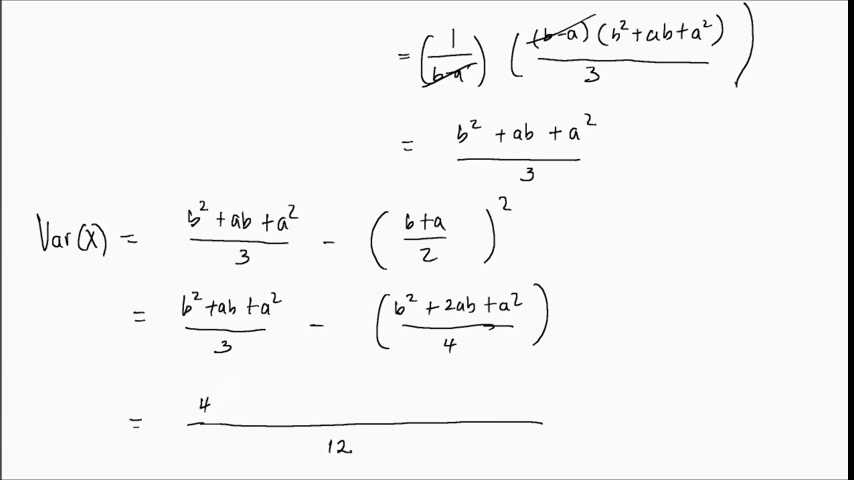 = (1/(b-a)) ((b-a)(b²+ab+a²)/3)
= (b²+ab+a²)/3
Var(X) = (b²+ab+a²)/3 - ((b+a)/2)²
= (b²+ab+a²)/3 - ((b²+2ab+a²)/4)
= 4/12